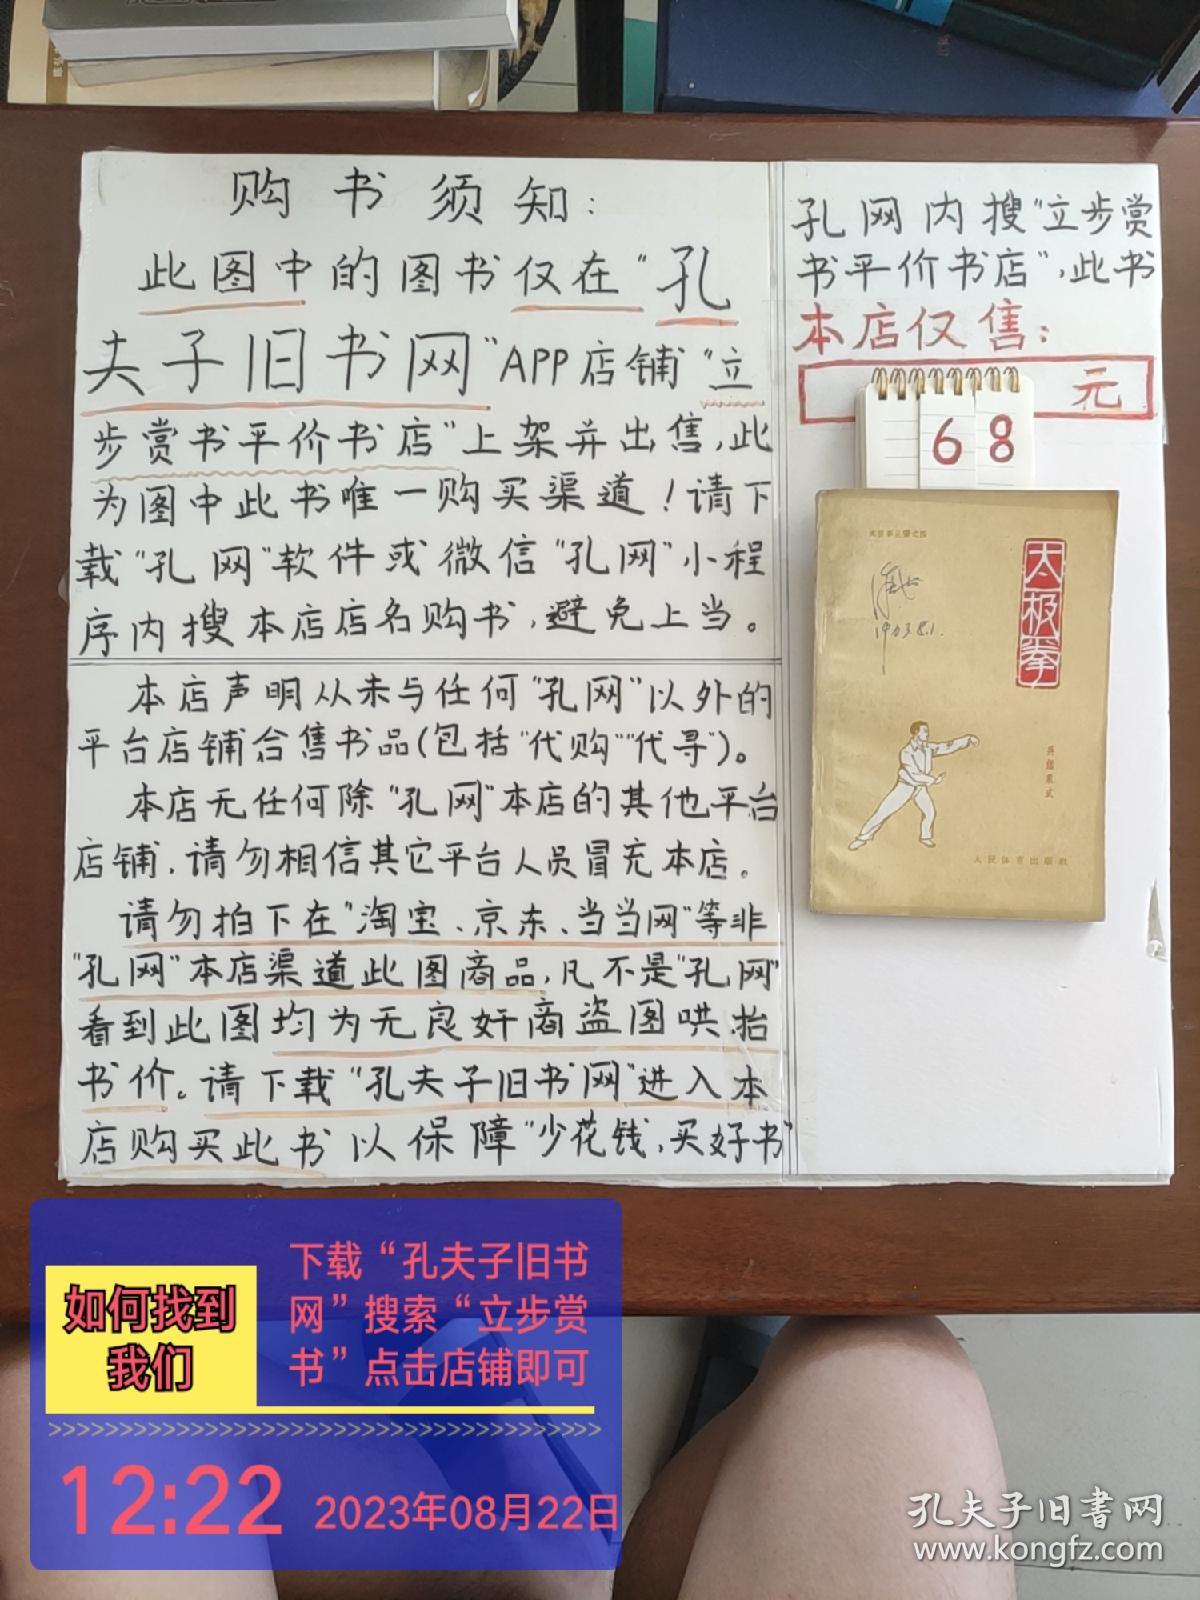 购书须知:
此图中的图书仅在“孔
夫子旧书网”APP店铺“立
步赏书平价书店”上架并出售,此
为图中此书唯一购买渠道!请下
载“孔网”软件或微信“孔网”小程
序内搜本店店名购书,避免上当。
本店声明从未与任何“孔网”以外的
平台店铺合售书品(包括“代购”“代寻”)。
本店无任何除“孔网”本店的其他平台
店铺,请勿相信其它平台人员冒充本店。
请勿拍下在“淘宝、京东、当当网”等非
“孔网”本店渠道此图商品,凡不是“孔网”
看到此图均为无良奸商盗图哄抬
书价。请下载“孔夫子旧书网”进入本
店购买此书以保障“少花钱,买好书”
孔网内搜“立步赏
书平价书店”,此书
本店仅售:
元
68
太极拳
吴鑑泉式
人民体育出版社
如何找到
我们
下载“孔夫子旧书
网”搜索“立步赏
书”点击店铺即可
>>>>>>>>>>>>>>>>>>>>>>>>>>>>>>>>>>>>>>>>
12:22
2023年08月22日
孔夫子旧書网
www.kongfz.com